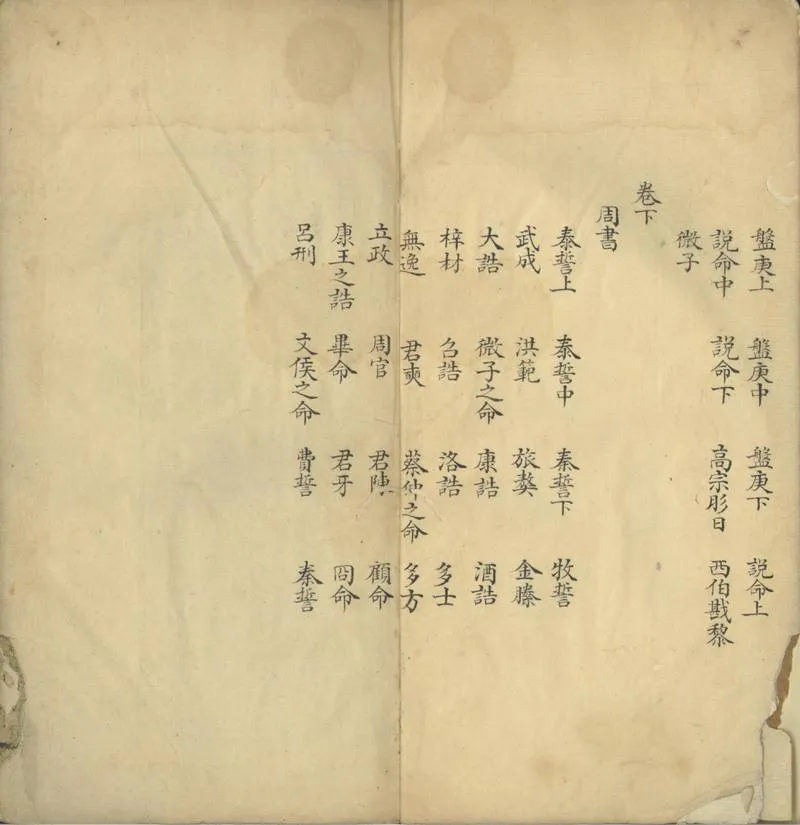 盤庚上 盤庚中 盤庚下 說命上
說命中 說命下 高宗肜日 西伯戡黎
微子
卷下
周書
泰誓上 泰誓中 泰誓下 牧誓
武成 洪範 旅獒 金縢
大誥 微子之命 康誥 酒誥
梓材 召誥 洛誥 多士
無逸 君奭 蔡仲之命 多方
立政 周官 君陳 顧命
康王之誥 畢命 君牙 冏命
呂刑 文侯之命 費誓 秦誓